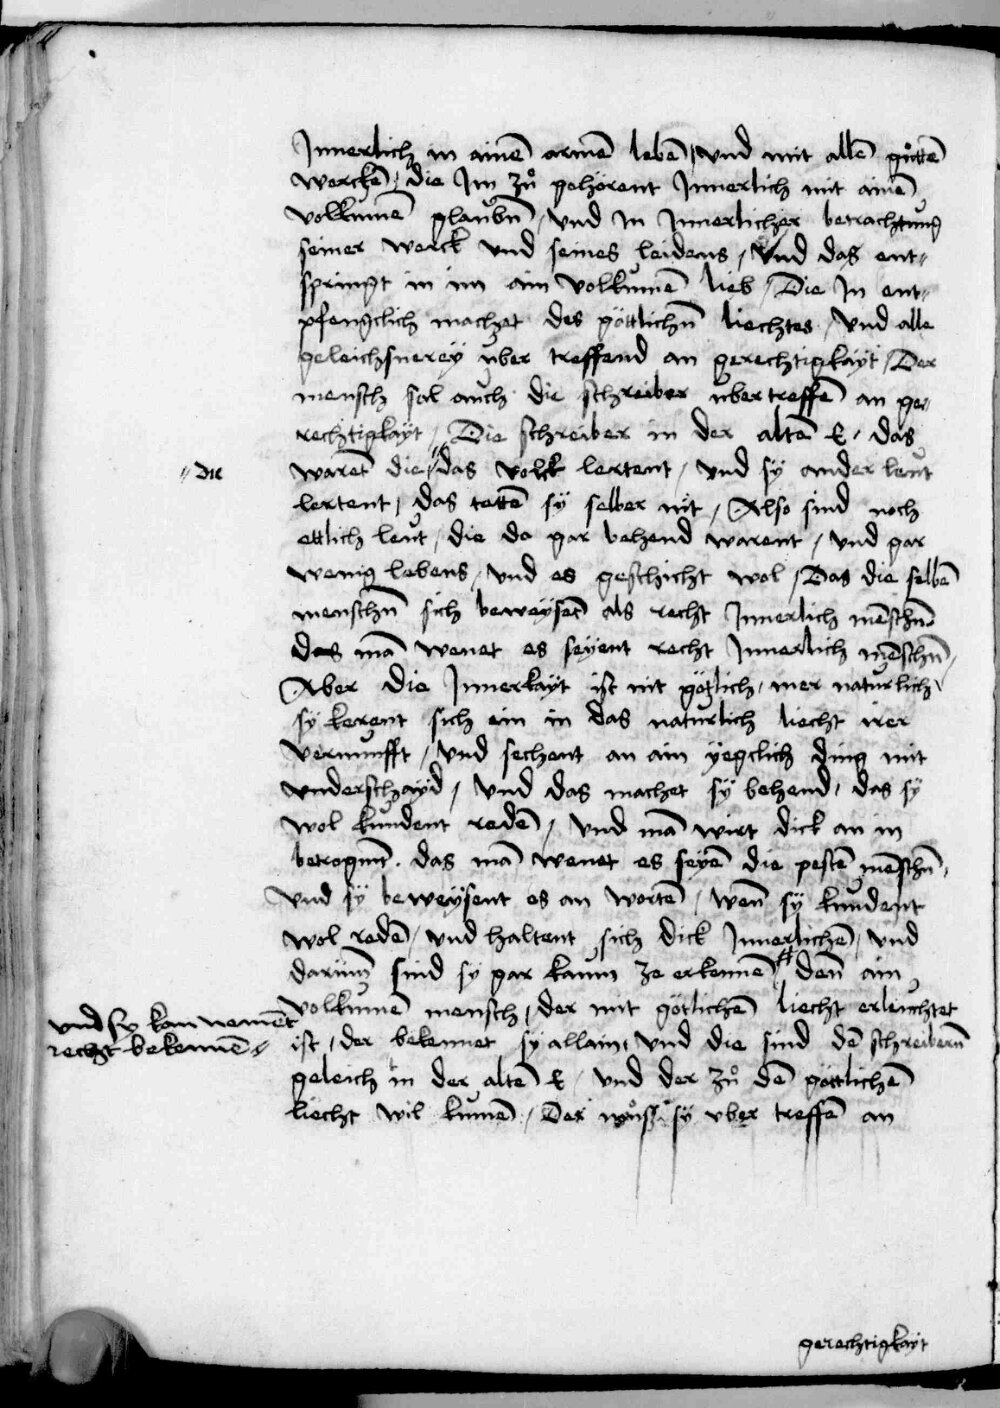 Innerlich in ainē armē lebē / und mit allē gůttē
werckē / die Im zů gehörent Innerlich mit ainē
volkumē glaubn̄ / und In Innerlicher betrachtung
seiner werck und seines leidens / und das ent〃
springt in im ain volkumē lieb / Die In ent〃
pfengclich machet des göttlichn̄ liechtes / und alle
geleichsnereÿ uber treffend an gerechtigkaÿt / Der
mensch sol auch die schreiber uber treffē an ge〃
rechtigkaÿt / Die schreiber in der altē E / das
warēt die 〃 das volck lertent / und sÿ ander leut
〃 die
lertent / das tettē sÿ selber nit / Also sind noch
ettlich leut / die do gar behend warent / und gar
wenig lebens / und es geschicht wol / Das die selbē
menschn̄ sich beweÿsēt als recht Innerlich mēschn̄
das mā wenet es seÿent recht Innerlich mēschn̄ /
Aber die Innerkaÿt ist nit götlich / mer naturlich
sÿ kerent sich ein in das naturlich liecht irer
vernunfft / und sechent an ain ÿegclich ding mit
underschaÿd / und das machet sÿ behend / das sÿ
wol kundent redē / und mā wirt dick an in
betrogn̄t . das mā wenet es seÿē die pestē mēschn̄ /
und sÿ beweÿsent es an wortē / wen̄ sÿ kundent
wol redē / und haltent sich dick Innerlichē / und
darum̄ sind sÿ gar kaum ze erkennē # den̄ ain
volkumē mensch / der mit götlichē liecht erleuchtet
und sy kan nemēt
recht bekennē 〃
ist / der bekennet sÿ allain / und die sind dē schreibern̄
geleich in der altē E / und der zů dē göttlichē
liecht wil kumē / Der můss sÿ uber treffē an
gerechtigkaÿt